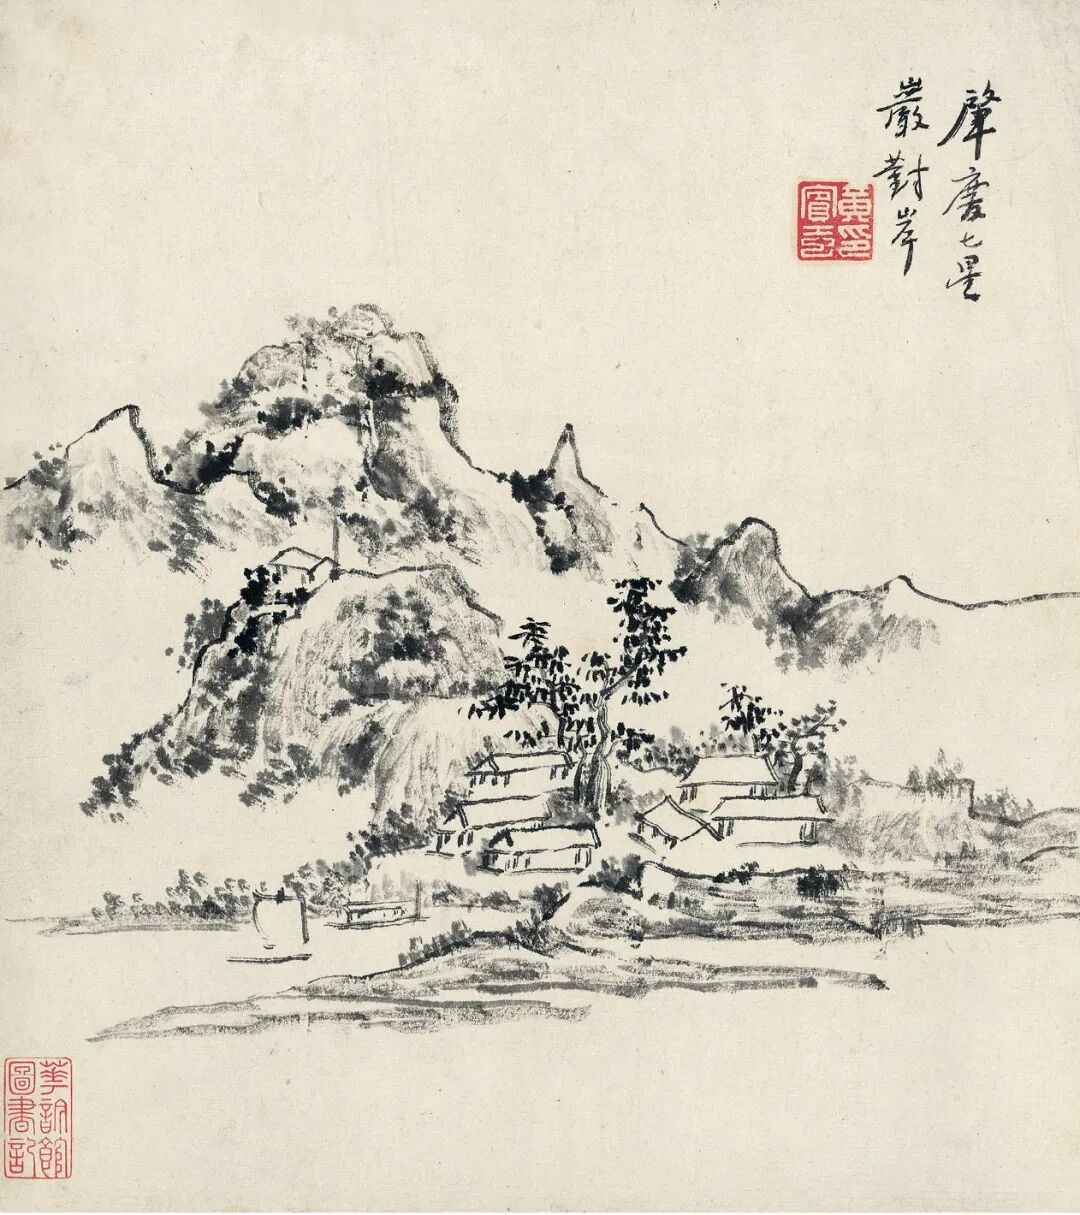 肇慶七星
巖對岸
黃賓虹印
華館
圖書記